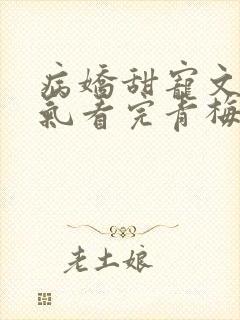 病嬌甜寵文
氣看完青梅
老土娘